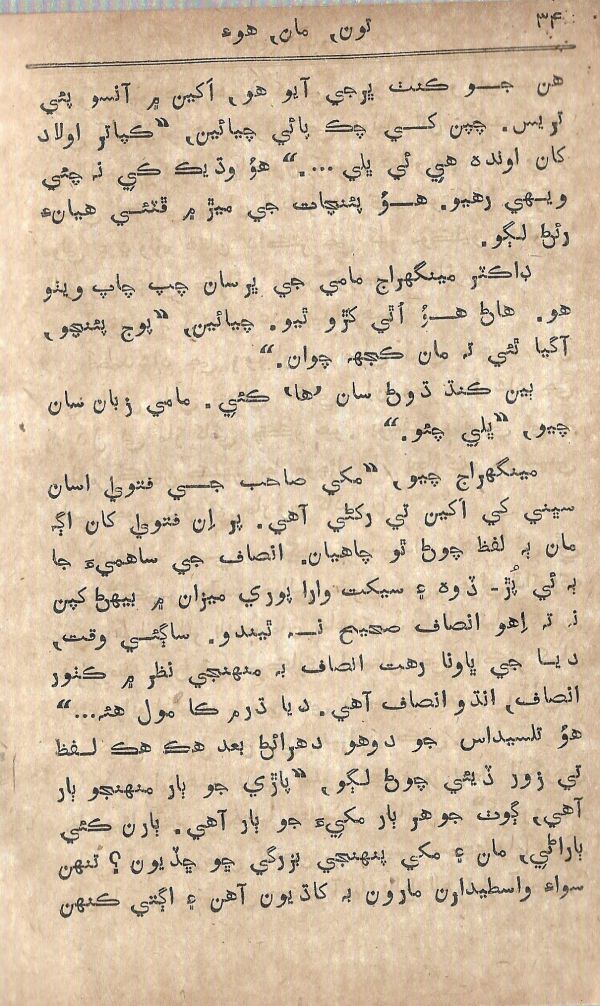 ۳۴
تون، مان، هوءَ
هن جو ڪنٺ ڀرجي آيو هو، اَکين ۾ آنسو ڀئي
تريس. چپن کي چڪ پائي چيائين، ”ڪپاتر اولاد
کان اونده هي ئي ڀلي ....“ هوُ وڌيڪ ڪي نہ چئي
ويهي رهيو. هوُ پئنچات جي ميڙ ۾ ڦٽي هيانءَ
رئڻ لڳو.
ڊاڪٽر مينگهراج مامي جي ڀرسان چپ چاپ ويٺو
هو. هاڻ هوُ اُٿي کڙو ٿيو. چيائين، ”پوڄ پئنچو،
آگيا ٿئي تہ مان ڪجهہ چوان.“
ٻين ڪنڌ ڌوڻ سان ’ها‘ ڪئي. مامي زبان سان
چيو، ”ڀلي چئو.“
مينگهراج چيو، ”مکي صاحب جي فتويٰ اسان
سڀني کي اَکين تي رکڻي آهي. پر اِن فتويٰ کان اڳہ
مان ٻہ لفظ چوڻ ٿو چاهيان. انصاف جي ساهميءَ جا
ٻہ ئي پُڙ - ڏوہ ۽ سيکت وارا پوري ميزان ۾ بيهڻ کپن
نہ تہ اِهو انصاف صحيح نہ ٿيندو. ساڳئي وقت،
ديا جي ڀاونا رهت انصاف بہ منهنجي نظر ۾ ڪٺور
انصاف، انڌو انصاف آهي. ديا ڌرم ڪا مول هئہ...“
هوُ تلسيداس جو دوهو دهرائڻ بعد هڪ هڪ لفظ
تي زور ڏيئي چوڻ لڳو، ”پاڙي جو ٻار منهنجو ٻار
آهي، ڳوٺ جو هر ٻار مکيءَ جو ٻار آهي. ٻارن ڪئي
ٻاراڻي، مان ۽ مکي پنهنجي بزرگي ڇو ڇڏيون؟ تنهن
سواءِ واسطيدارن مارون بہ کاڌيون آهن ۽ اڳتي ڪنهن